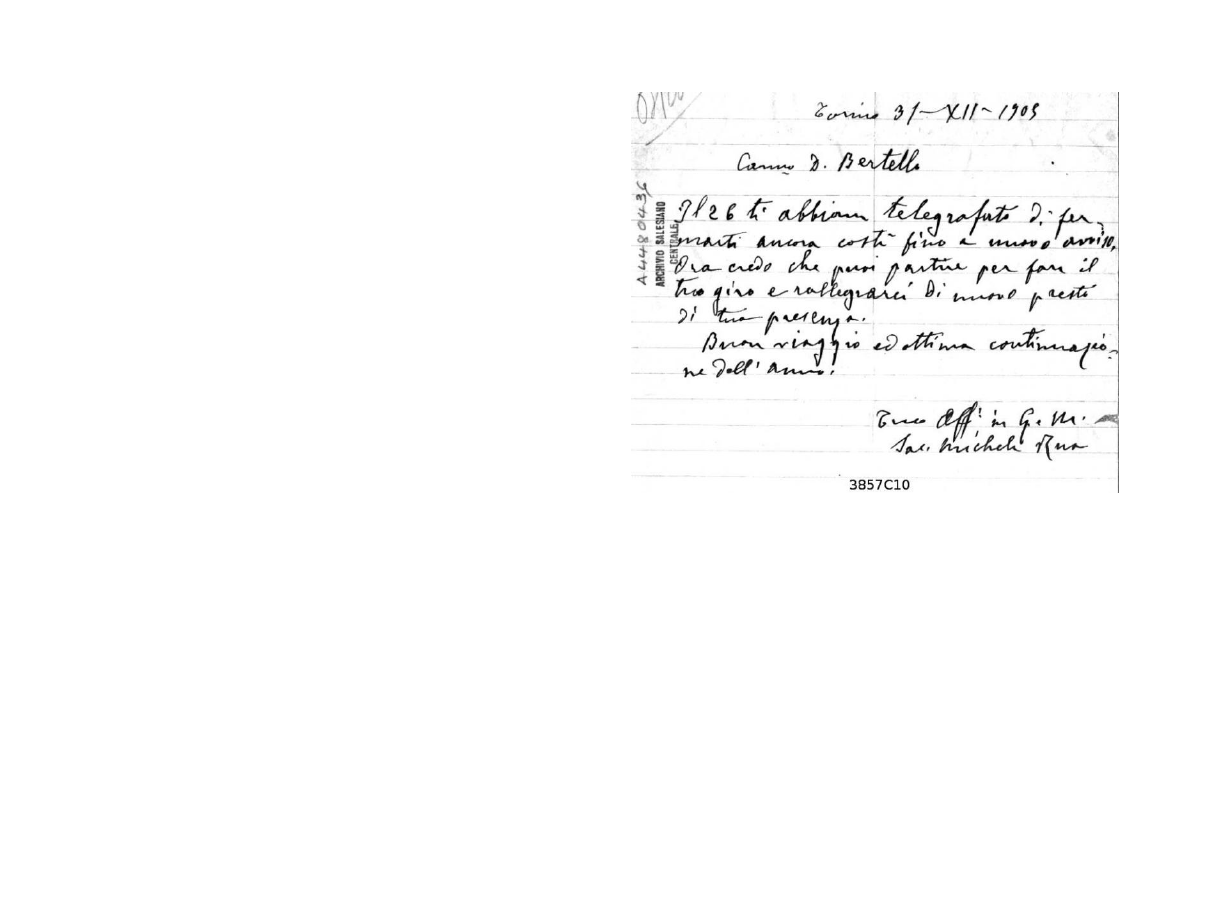 Torino 31-XII-1905
Car.mo D. Bertello
Il 26 ti abbiam telegrafato di fer-
marti ancora costì fino a nuovo avviso,
Ora credo che puoi partire per fare il
tuo giro e rallegrarci di nuovo presto
di tua presenza.
Buon viaggio ed ottima continuazio-
ne dell'anno!
Tuo Aff. in G. e M.
Sac. Michele Rua
A4480436
ARCHIVIO SALESIANO
CENTRALE
3857C10